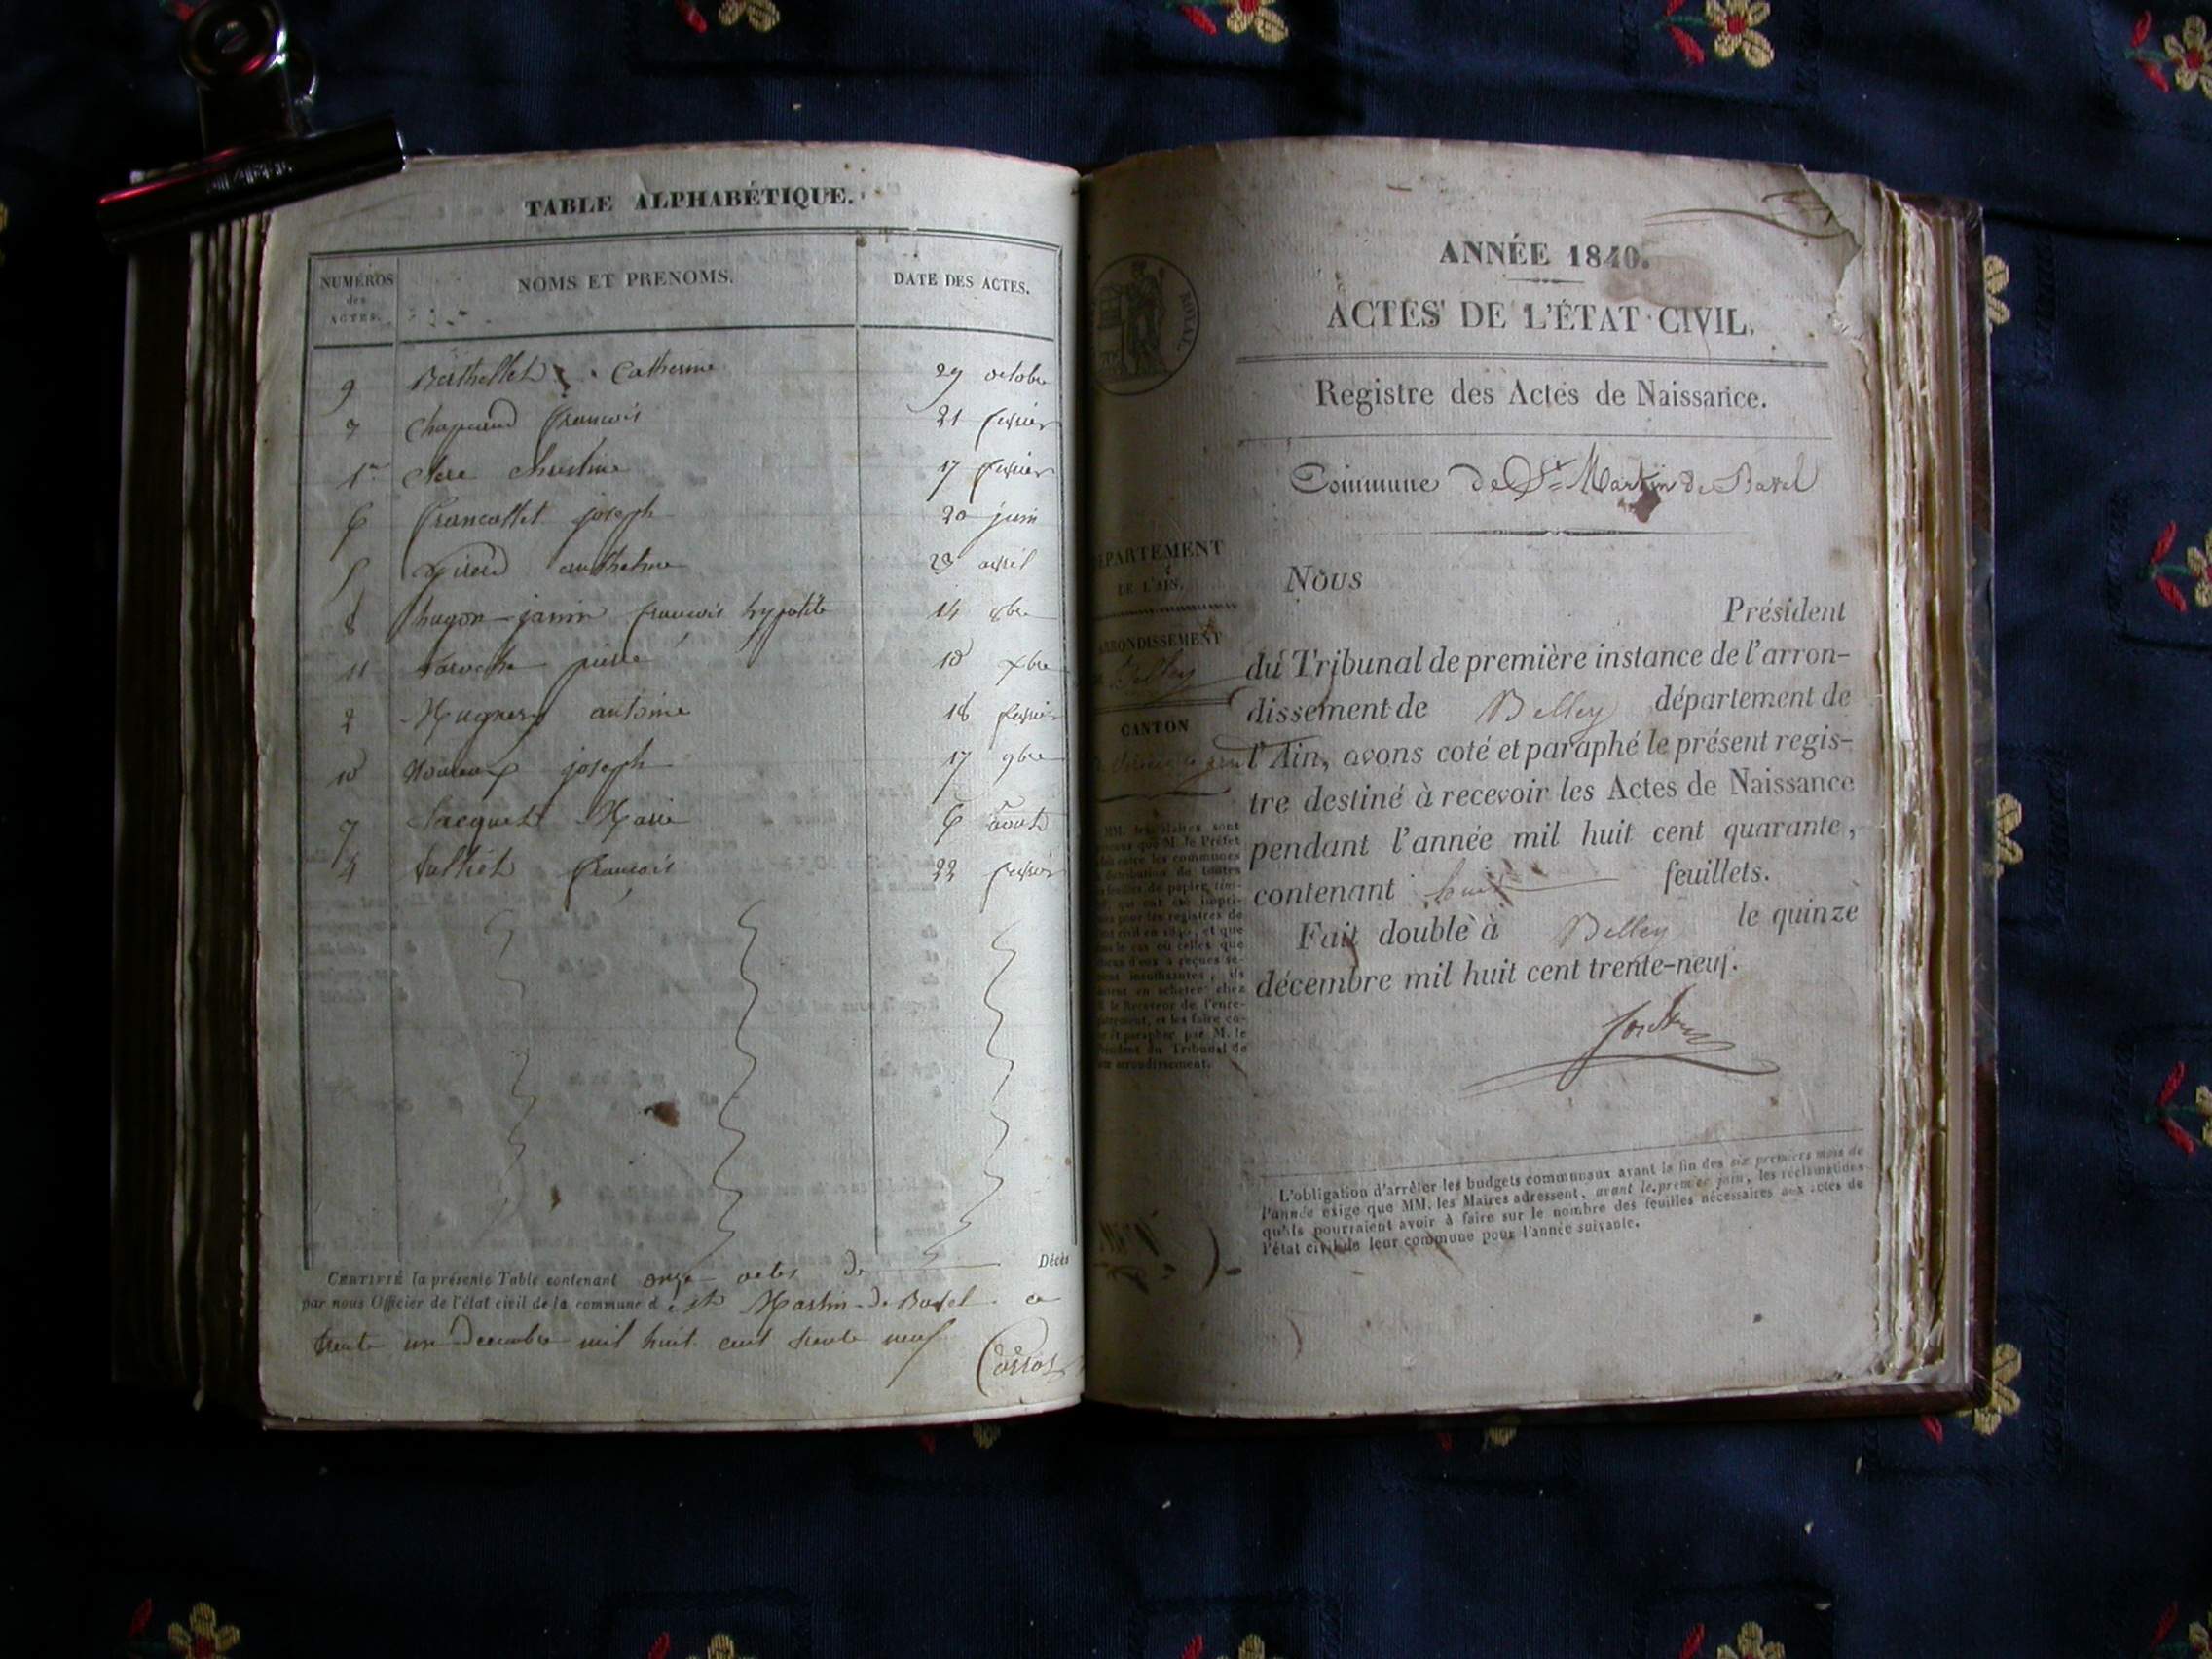 TABLE ALPHABÉTIQUE.
NUMÉROS des ACTES.
NOMS ET PRENOMS.
DATE DES ACTES.
9 Berthellet Catherine 29 octobre
Chapuand francois 21 fevrier
1er Christine 17 fevrier
6 francallet joseph 20 juin
5 anthelme 23 avril
8 hugon-janin francois hypolite 14 8bre
11 Laroche pierre 10 xbre
2 Mugnery antoine 18 fevrier
10 joseph 17 9bre
7 Marie 6 août
4 francois 22 fevrier
CERTIFIÉ la présente Table contenant onze actes de Décès
par nous Officier de l'état civil de la commune d St Martin-de Bavel ce
trente un decembre mil huit cent trente neuf
ANNÉE 1840.
ACTES DE L'ÉTAT CIVIL,
Registre des Actes de Naissance.
Commune de St Martin de Bavel
ROYAL
DÉPARTEMENT
DE L'AIN.
ARRONDISSEMENT
Belley
CANTON
MM. les Maires sont
que M. le Préfet
les communes
distribution de toutes
feuilles de papier tim-
qui ont été impri-
pour les registres de
civil en 1840, et que
le cas où celles que
d'eux a reçues se-
insuffisantes, ils
en acheter chez
le Receveur de l'enre-
et les faire co-
et parapher par M. le
du Tribunal de
arrondissement.
Nous
Président
du Tribunal de première instance de l'arron-
dissement de Belley département de
l'Ain, avons coté et paraphé le présent regis-
tre destiné à recevoir les Actes de Naissance
pendant l'année mil huit cent quarante,
contenant huit feuillets.
Fait double à Belley le quinze
décembre mil huit cent trente-neuf.
L'obligation d'arrêter les budgets communaux avant la fin des six premiers mois de
l'année exige que MM. les Maires adressent, avant le premier juin, les réclamations
qu'ils pourraient avoir à faire sur le nombre des feuilles nécessaires aux actes de
l'état civil de leur commune pour l'année suivante.